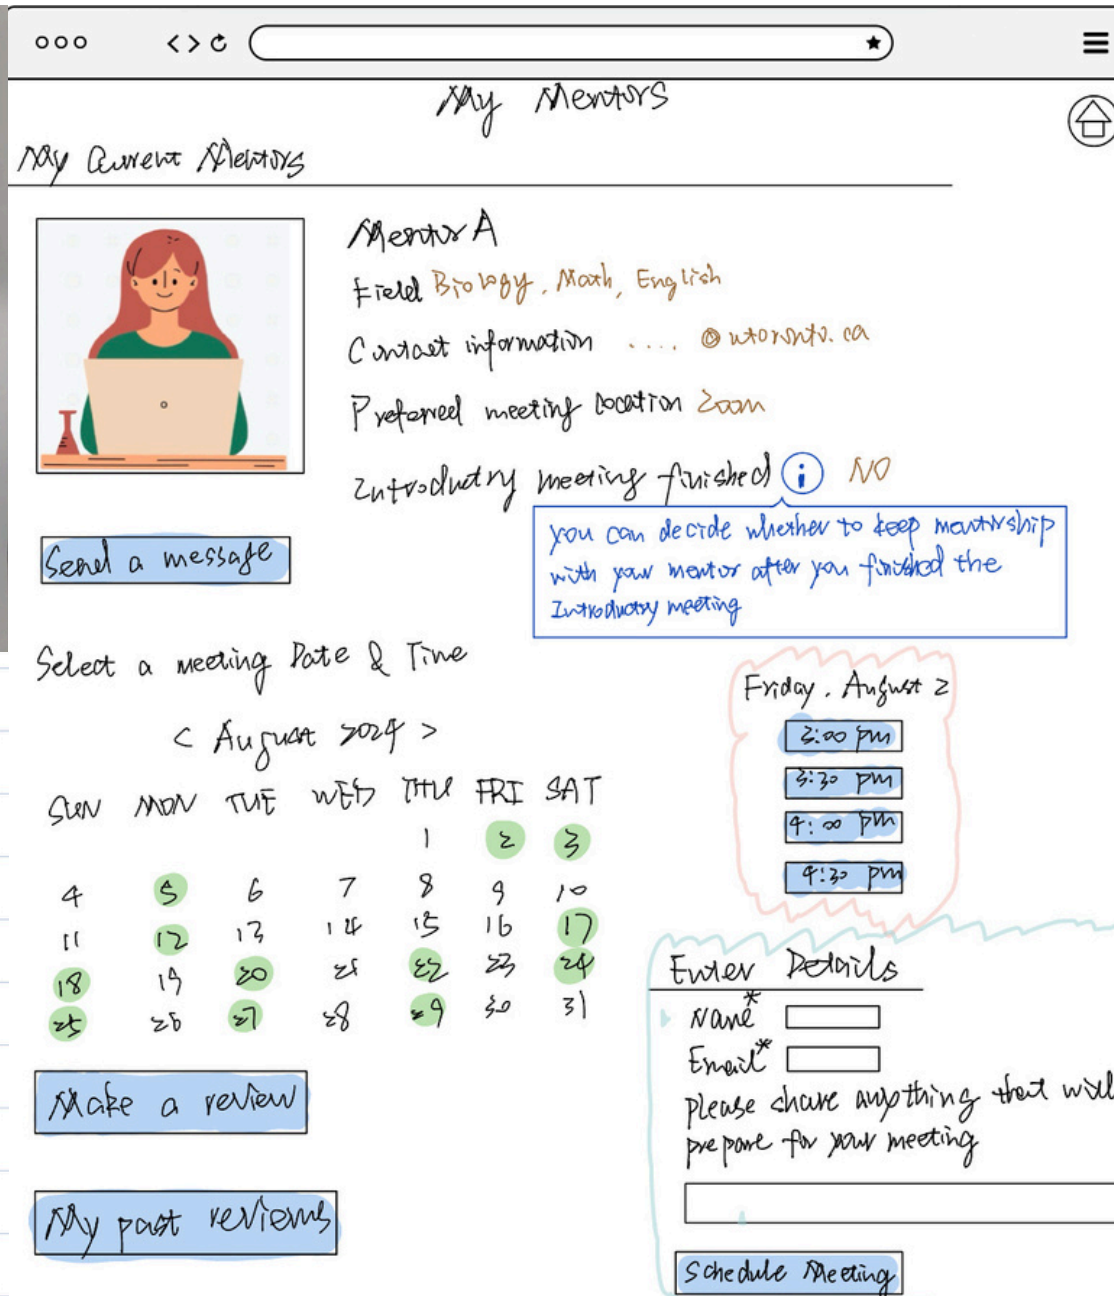 My Mentors
My Current Mentors
Mentor A
Field Biology, Math, English
Contact information .... @utoronto.ca
Preferred meeting location Zoom
Introductry meeting finished i NO
you can decide whether to keep mentorship
with your mentor after you finished the
Introductory meeting
Send a message
Select a meeting Date & Time
< August 2024 >
SUN MON TUE WED THU FRI SAT
1 2 3
4 5 6 7 8 9 10
11 12 13 14 15 16 17
18 19 20 21 22 23 24
25 26 27 28 29 30 31
Make a review
My past reviews
Friday, August 2
3:00 pm
3:30 pm
4:00 pm
4:30 pm
Enter Details
Name*
Email*
please share anything that will
prepare for your meeting
Schedule Meeting